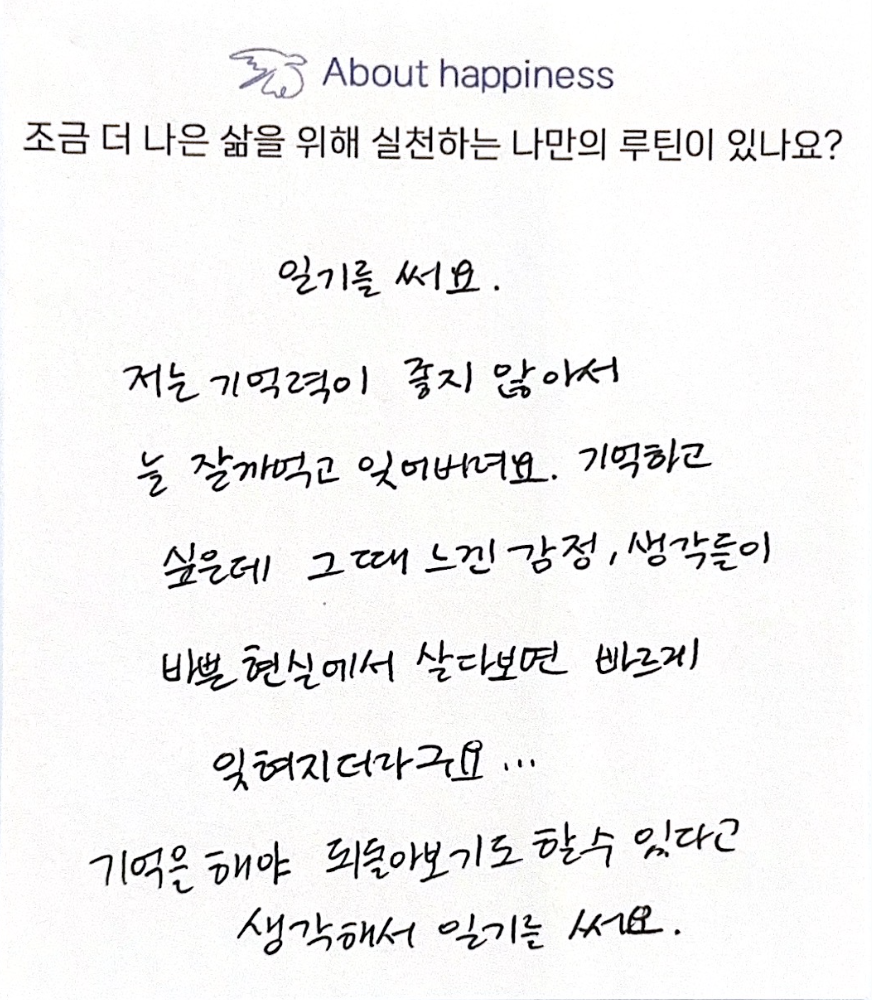 About happiness
조금 더 나은 삶을 위해 실천하는 나만의 루틴이 있나요?
일기를 써요.
저는 기억력이 좋지 않아서
늘 잘까먹고 잊어버려요. 기억하고
싶은데 그때 느낀 감정, 생각들이
바쁜 현실에서 살다보면 빠르게
잊혀지더라구요...
기억을 해야 되돌아보기도 할수 있다고
생각해서 일기를 써요.